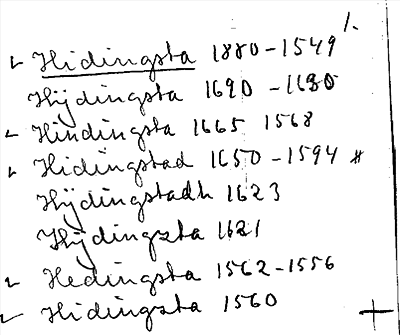 1.
Hidingsta 1880-1549
Hijdingsta 1690-1680
Hindingsta 1665 1568
Hidingstad 1650-1594 #
Hijdingstadh 1623
Hijdingzta 1621
Hedingsta 1562-1556
Hidingsta 1560